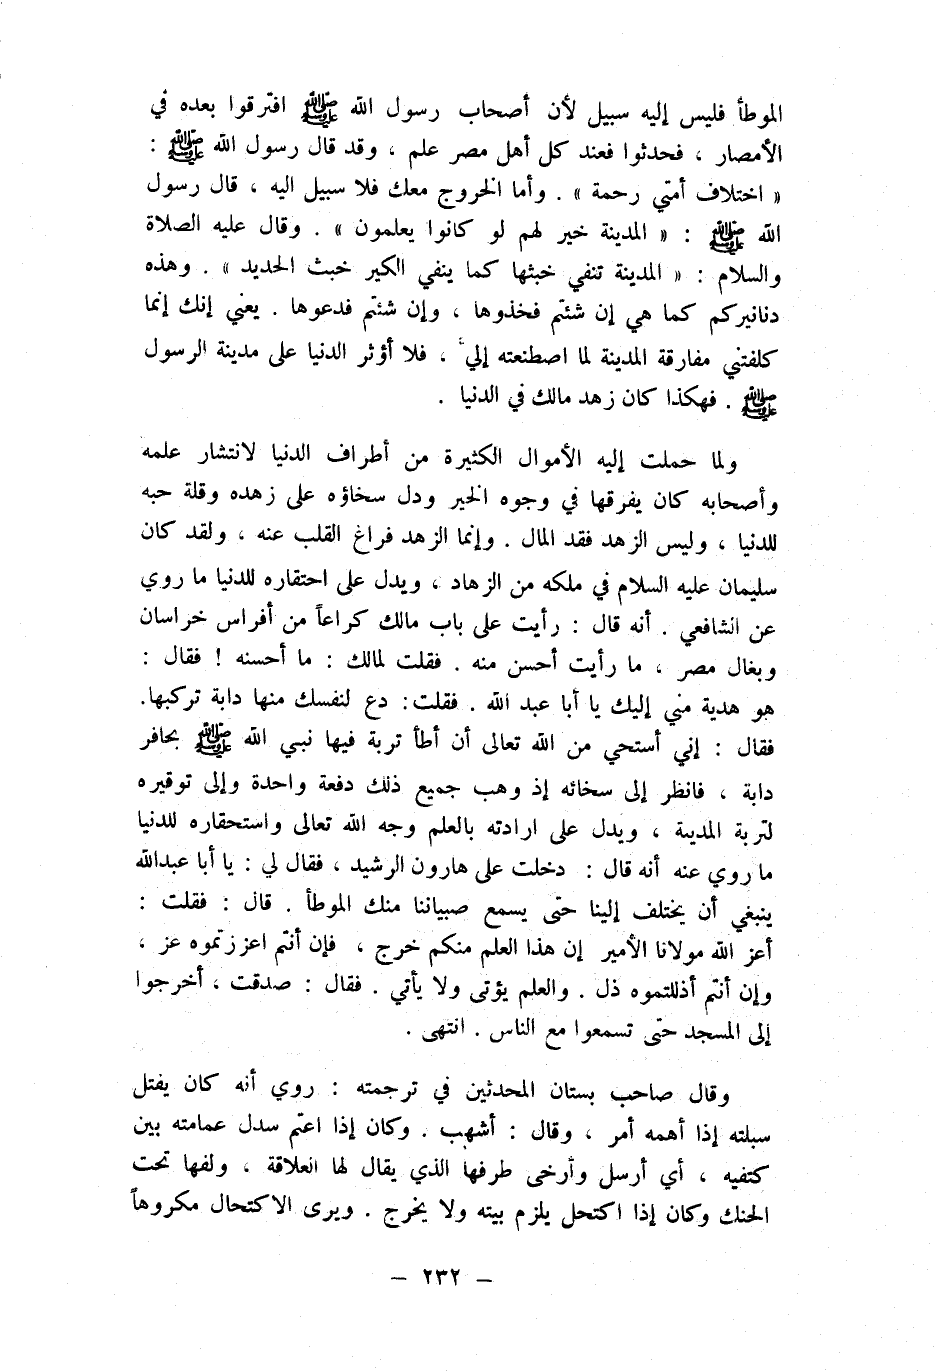 الموطأ فليس إليه سبيل لأن أصحاب رسول الله ﷺ افترقوا بعده في
الأمصار ، فحدثوا فعند كل أهل مصر علم ، وقد قال رسول الله ﷺ :
« اختلاف أمتي رحمة » . وأما الخروج معك فلا سبيل اليه ، قال رسول
الله ﷺ : « المدينة خير لهم لو كانوا يعلمون » . وقال عليه الصلاة
والسلام : « المدينة تنفي خبثها كما ينفي الكير خبث الحديد » . وهذه
دنانيركم كما هي إن شئتم فخذوها ، وإن شئتم فدعوها . يعني إنك إنما
كلفتني مفارقة المدينة لما اصطنعته إلي ، فلا أؤثر الدنيا على مدينة الرسول
ﷺ . فهكذا كان زهد مالك في الدنيا .
ولما حملت إليه الأموال الكثيرة من أطراف الدنيا لانتشار علمه
وأصحابه كان يفرقها في وجوه الخير ودل سخاؤه على زهده وقلة حبه
للدنيا ، وليس الزهد فقد المال . وإنما الزهد فراغ القلب عنه ، ولقد كان
سليمان عليه السلام في ملكه من الزهاد ، ويدل على احتقاره للدنيا ما روي
عن الشافعي . أنه قال : رأيت على باب مالك كراعاً من أفراس خراسان
وبغال مصر ، ما رأيت أحسن منه . فقلت لمالك : ما أحسنه ! فقال :
هو هدية مني إليك يا أبا عبد الله . فقلت : دع لنفسك منها دابة تركبها.
فقال : إني أستحي من الله تعالى أن أطأ تربة فيها نبي الله ﷺ بحافر
دابة ، فانظر إلى سخائه إذ وهب جميع ذلك دفعة واحدة وإلى توقيره
لتربة المدينة ، ويدل على ارادته بالعلم وجه الله تعالى واستحقاره للدنيا
ما روي عنه أنه قال : دخلت على هارون الرشيد ، فقال لي : يا أبا عبدالله
ينبغي أن يختلف إلينا حتى يسمع صبياننا منك الموطأ . قال : فقلت :
أعز الله مولانا الأمير إن هذا العلم منكم خرج ، فإن أنتم اعززتموه عز ،
وإن أنتم أذللتموه ذل . والعلم يؤتى ولا يأتي . فقال : صدقت ، أخرجوا
إلى المسجد حتى تسمعوا مع الناس . انتهى .
وقال صاحب بستان المحدثين في ترجمته : روي أنه كان يفتل
سبلته إذا أهمه أمر ، وقال : أشهب . وكان إذا اعتم سدل عمامته بين
كتفيه ، أي أرسل وأرخى طرفها الذي يقال لها العلاقة ، ولفها تحت
الحنك وكان إذا اكتحل يلزم بيته ولا يخرج . ويرى الاكتحال مكروهاً
– ٢٣٢ –